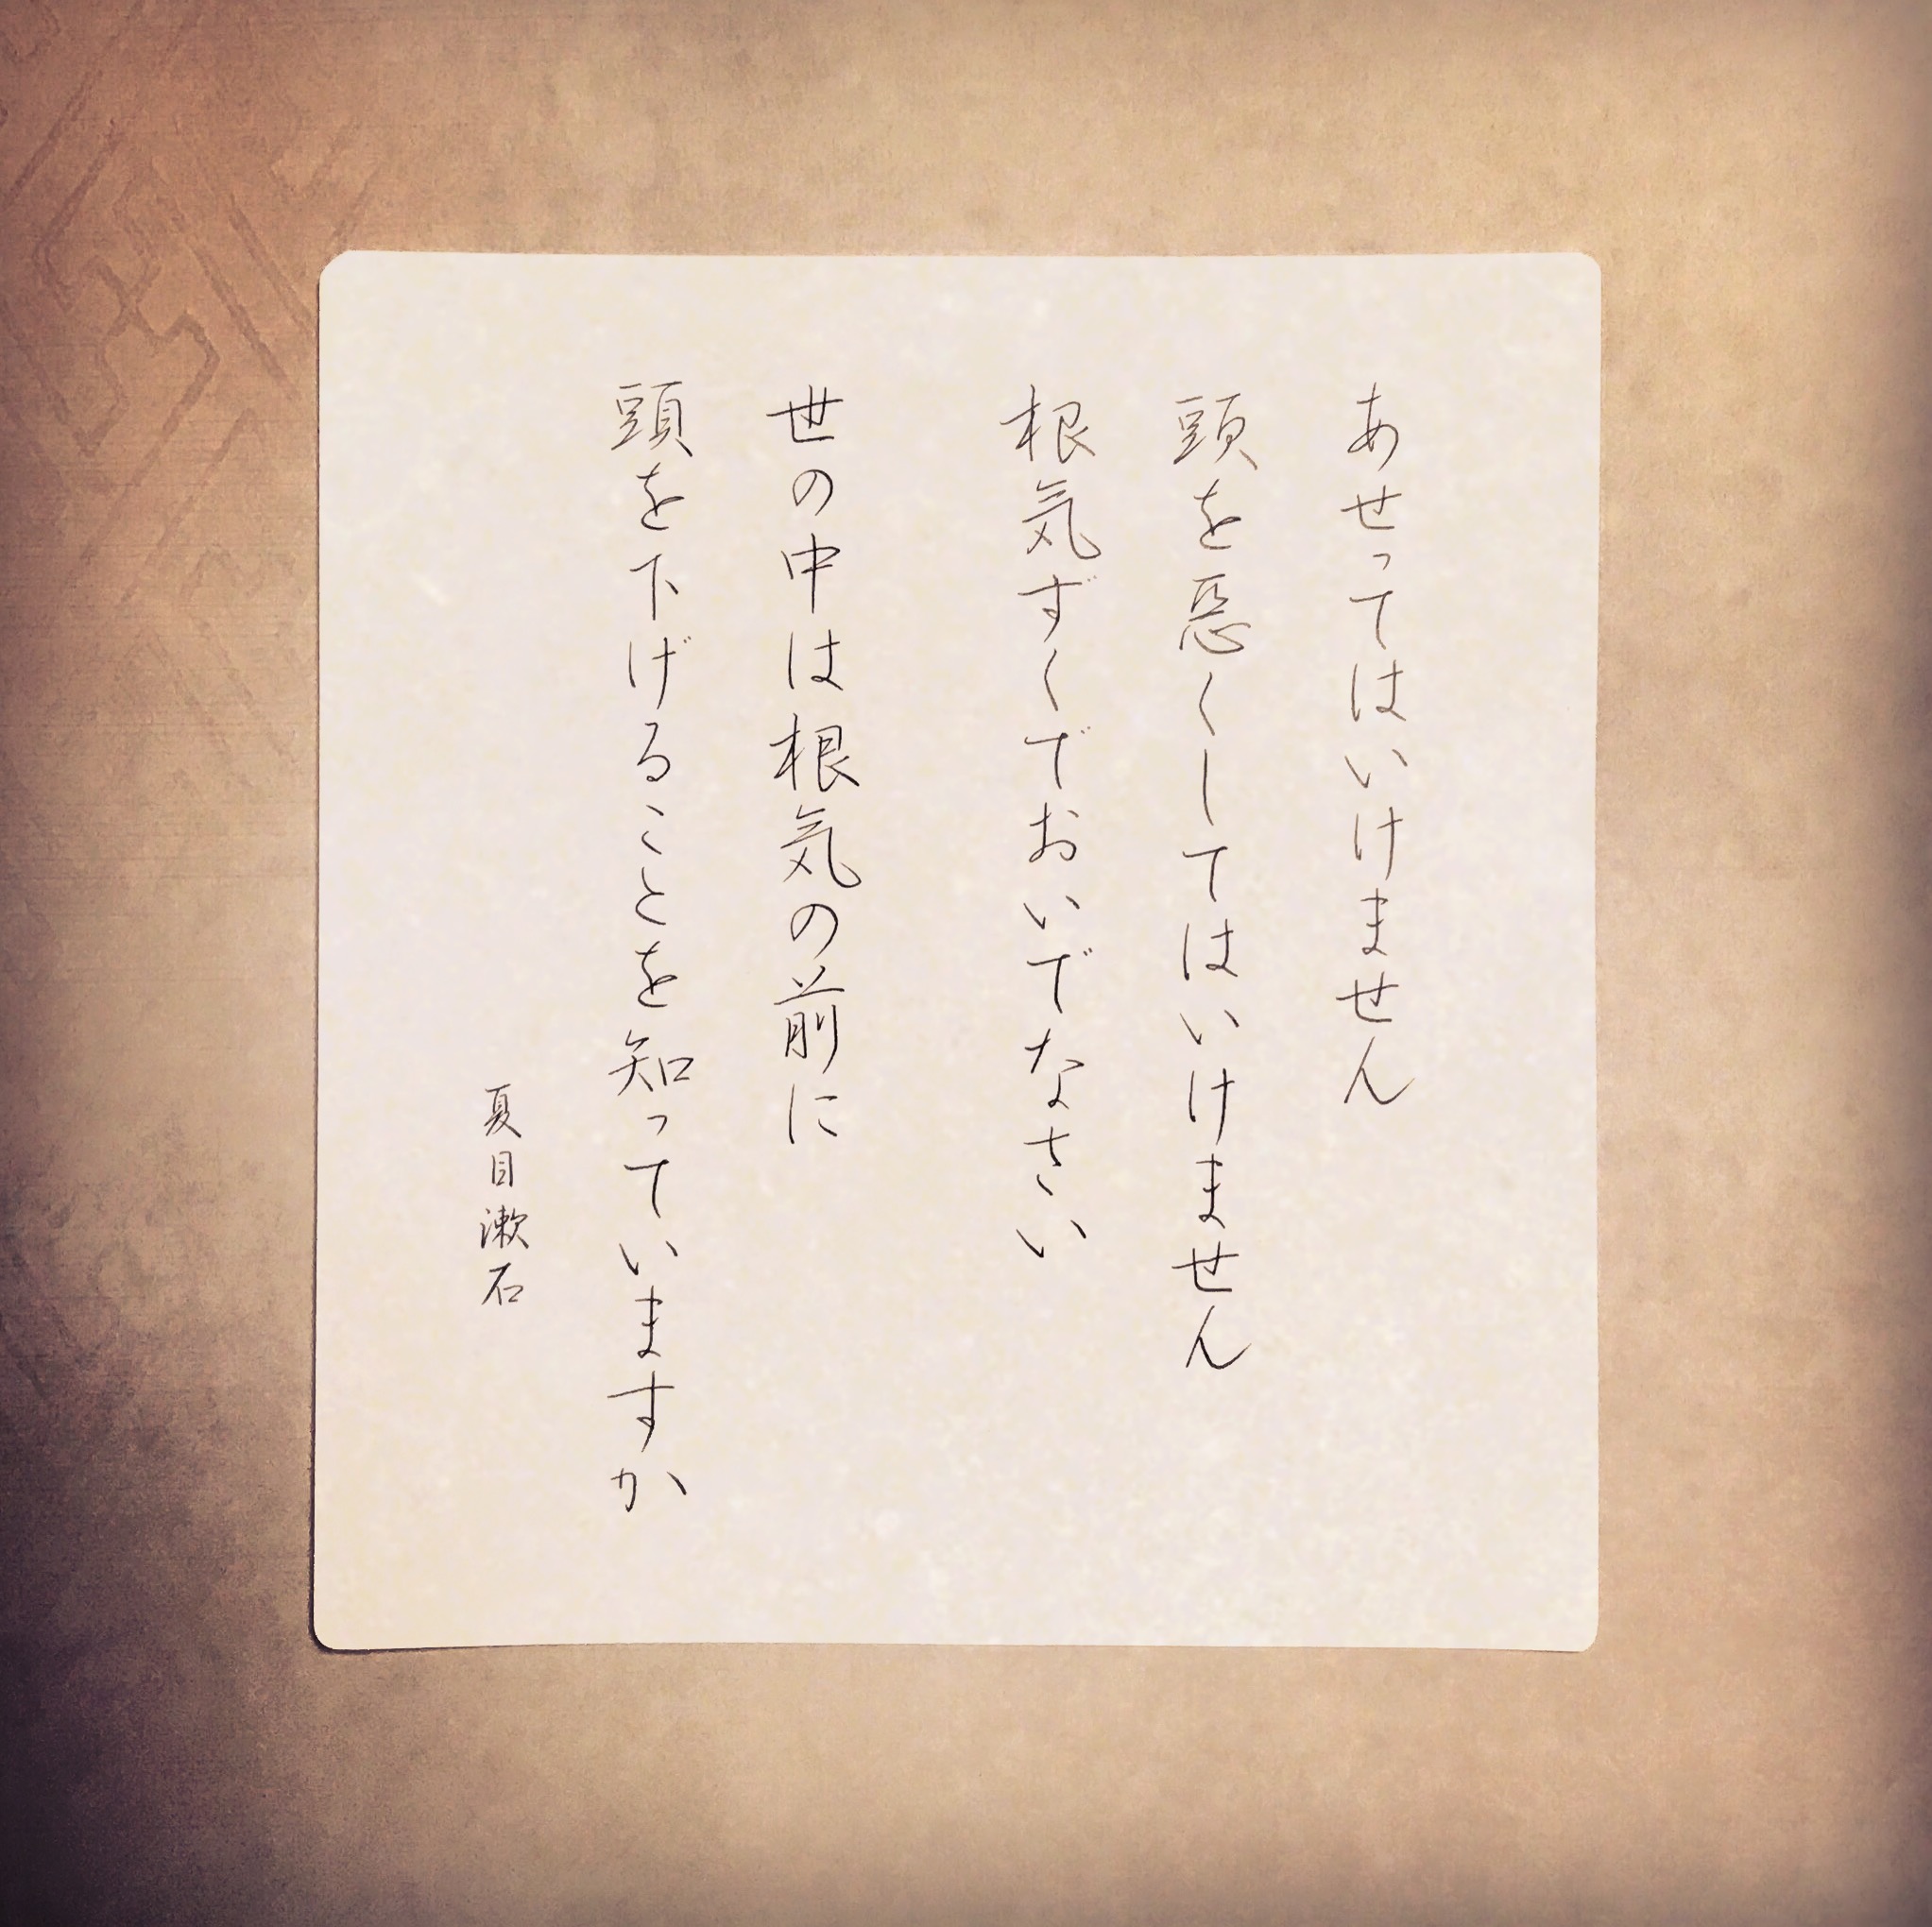 あせってはいけません
頭を悪くしてはいけません
根気ずくでおいでなさい
世の中は根気の前に
頭を下げることを知っていますか
夏目漱石